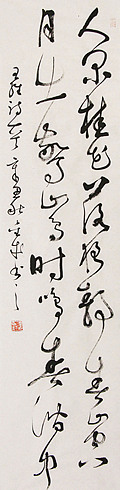 人闲桂花落夜静春山空
月出惊山鸟时鸣春涧中
王维诗一首